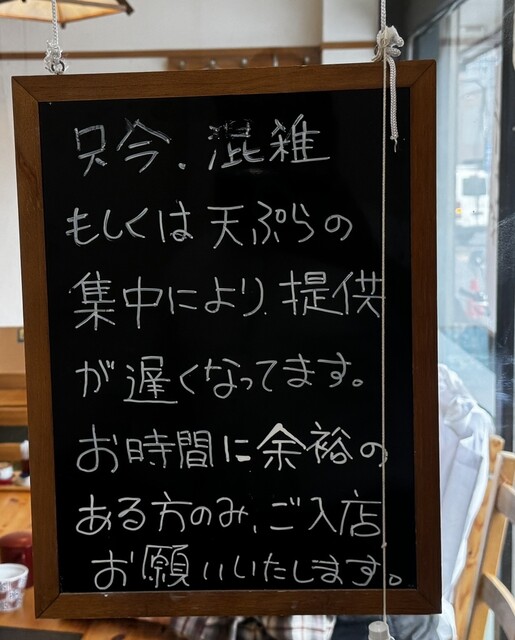 只今、混雑
もしくは天ぷらの
集中により、提供
が遅くなってます。
お時間に余裕の
ある方のみ、ご入店
お願いいたします。